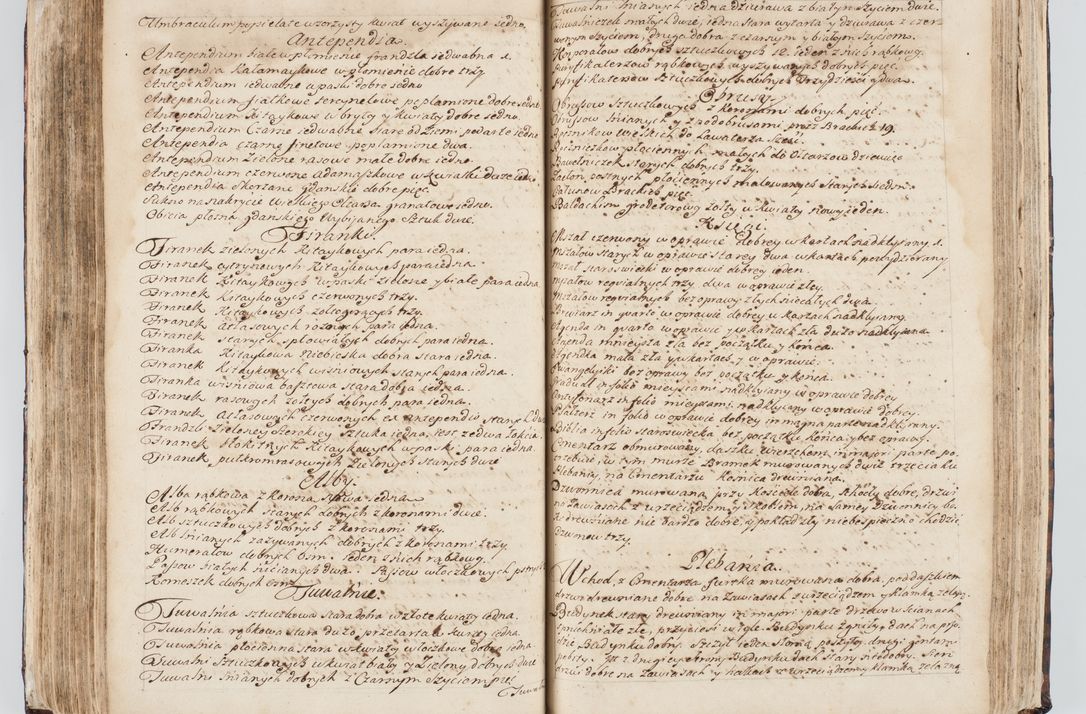 Umbraculum popielate wzorzysty kwiat wyszywane jedno.
Antependia.
Antependium białe w płomienie grandzla jedwabna 1.
Antependia Kałamaykowe w płomienie dobre trzy
Antependium jedwabne w paski dobre jedno
Antependium fiałkowe tercynelowe poplamione dobre jedno
Antependium Kitaykowe w bryty y kwiaty dobre jedno
Antependium Czarne jedwabne stare od Ziemi podarte jedno
Antependia czarne poplamione dwa.
Antependium Zielone rasowe małe dobre jedno
Antependium czerwone adamaszkowe w kwiatki duże jedno
Antependia Skorzane gdanskie dobre pięć.
Sukno na nakrycie Wielkiego Ołtarza granatowe jedno.
Obicia płotna gdanskiego wybijanego Sztuk dwie.
Firanki.
Firanek zielonych Kitaykowych para jedna.
Firanek cytrynowych Kitaykowych para jedna.
Firanek Kitaykowych w paski zielone y białe para jedna
Firanek Kitaykowych czerwonych trzy.
Firanek Kitaykowych żołtogorących trzy.
Firanek atłasowych rożnych para jedna.
Firanek starych spłowiałych dobrych para jedna.
Firanka Kitaykowa Niebieska dobra stara jedna.
Firanek Kitaykowych wisniowych starych para jedna.
Firanka wisniowa stara dobra jedna.
Firanek rasowych żołtych dobrych para jedna.
Firanek atłasowych czerwonych ex antependio starych dwie
Frandzli Zieloney Sztuka jedna, jest ze dwa łokcia.
Firanek Kitaykowych w paski para jedna
Firanek zielonych starych dwie
Alby.
Alba rąbkowa z koroną nowa jedna
Alb rąbkowych starych dobrych z koronami dwie.
Alb sztuczkowych dobrych z koronami trzy.
Alb lnianych zażywanych dobrych z koronami trzy.
Humerałow dobrych osm. jeden z nich rąbkowy.
Pasow białych niciannych dwa. Pasow włoczkowych
Komeszek dobrych osm
Tuwalnie.
Tuwalnia sztuczkowa stara dobra w złote kwiaty jedna.
Tuwalnia rąbkowa stara dużo przetarta Kwiaty jedna.
Tuwalnia płocienna stara w kwiaty włoczkowe dobra jedna
Tuwalni Sztuczkowych w kwiat biały y zielony dobrych dwie
Tuwalni lnianych dobrych z Czarnym Szyciem pięć
Tuwalni
Tuwalni lnianych jedna dziurawa z białym szyciem dwie.
Tuwalniczek małych dwie, jedna stara wytarta y dziurawa z czer-
wonym szyciem, druga dobra z czarnym y białym szyciem.
Korporałow dobrych sztuczkowych 12. jeden z nich rąbkowy.
Puryfikaterzow rąbkowych wyszywanych dobrych pięć.
Puryfikaterzow Sztuczkowych dobrych Trzydziesci y dwa.
Obrusy.
Obrusow Sztuczkowych z koronami dobrych pięć.
Obrusow lnianych y z podobrusami przez Brackich 19.
Ręcznikow Wielkich do Lawaterza Sześć.
Ręczniczkow płociennych małych do Ołtarzow dziewięć
Bawełniczek starych dobrych trzy.
Zasłon postnych płociennych malowanych starych siedm.
Całunow Brackich pięć.
Baldachim grodetorowy żołty w kwiaty nowy jeden.
Księgi.
Mszał czerwony w oprawie Dobrey w kartach nadklijany 1.
Mszałow starych w oprawie starey dwa w kartach
Mszał staroswiecki w oprawie dobrey jeden.
Mszałow requialnych trzy dwa w oprawie złey.
Mszałow requialnych bez oprawy złych niecałych dwa.
Brewiarz in quarto w oprawie dobrey w kartach nadklijany.
Agenda in quarto w oprawie y w kartach zła dużo nadklijana.
Agenda mnieysza zła bez początku y końca.
Agendka mała zła y w kartach y w oprawie.
Ewangelyiki bez oprawy bez początku y końca.
Graduał in folio mieyscami nadklijany w oprawie dobrey
Antyfonarz in folio mieyscami nadklijany w oprawie dobrey.
Psałterz in folio w oprawie dobrey in magna parte nadklijany.
Biblia in folio staroswiecka bez początku końca y bez oprawy.
Cmentarz obmurowany, daszku wierzchem in majori parte po-
trzebuie, w tym murze Bramek murowanych dwie trzecia ku
Plebanij, na Cmentarzu Kosnica drewniana.
Dzwonnica murowana przy Koscele dobra, schody dobre, drzwi
na zawiasach z wrzeciądzem y skoblem, na samey Dzwonnicy be-
 drewniane nie bardzo dobre y pokład zły niebespieczno chodzić
Dzwonow trzy.
Plebania.
Wchod z Cmentarza Furtka murowana dobra, pod daszkiem
drzwi drewniane dobre na zawiasach z wrzeciądzem y klamką żelazn
Budynek stary drewniany in majori parte drzewo w scianach
 złe, przyciesi w koło Budynku zgniły, dach na przo-
dzie Budynku dobry. Szczyt jeden słomą poszyty, drugi gontam
pobity. Jt z drugiey strony Budynku dach stary niedobry. Sieni
drzwi dobre na zawiasach y hakach z wrzeciądzem y klamką żelazną